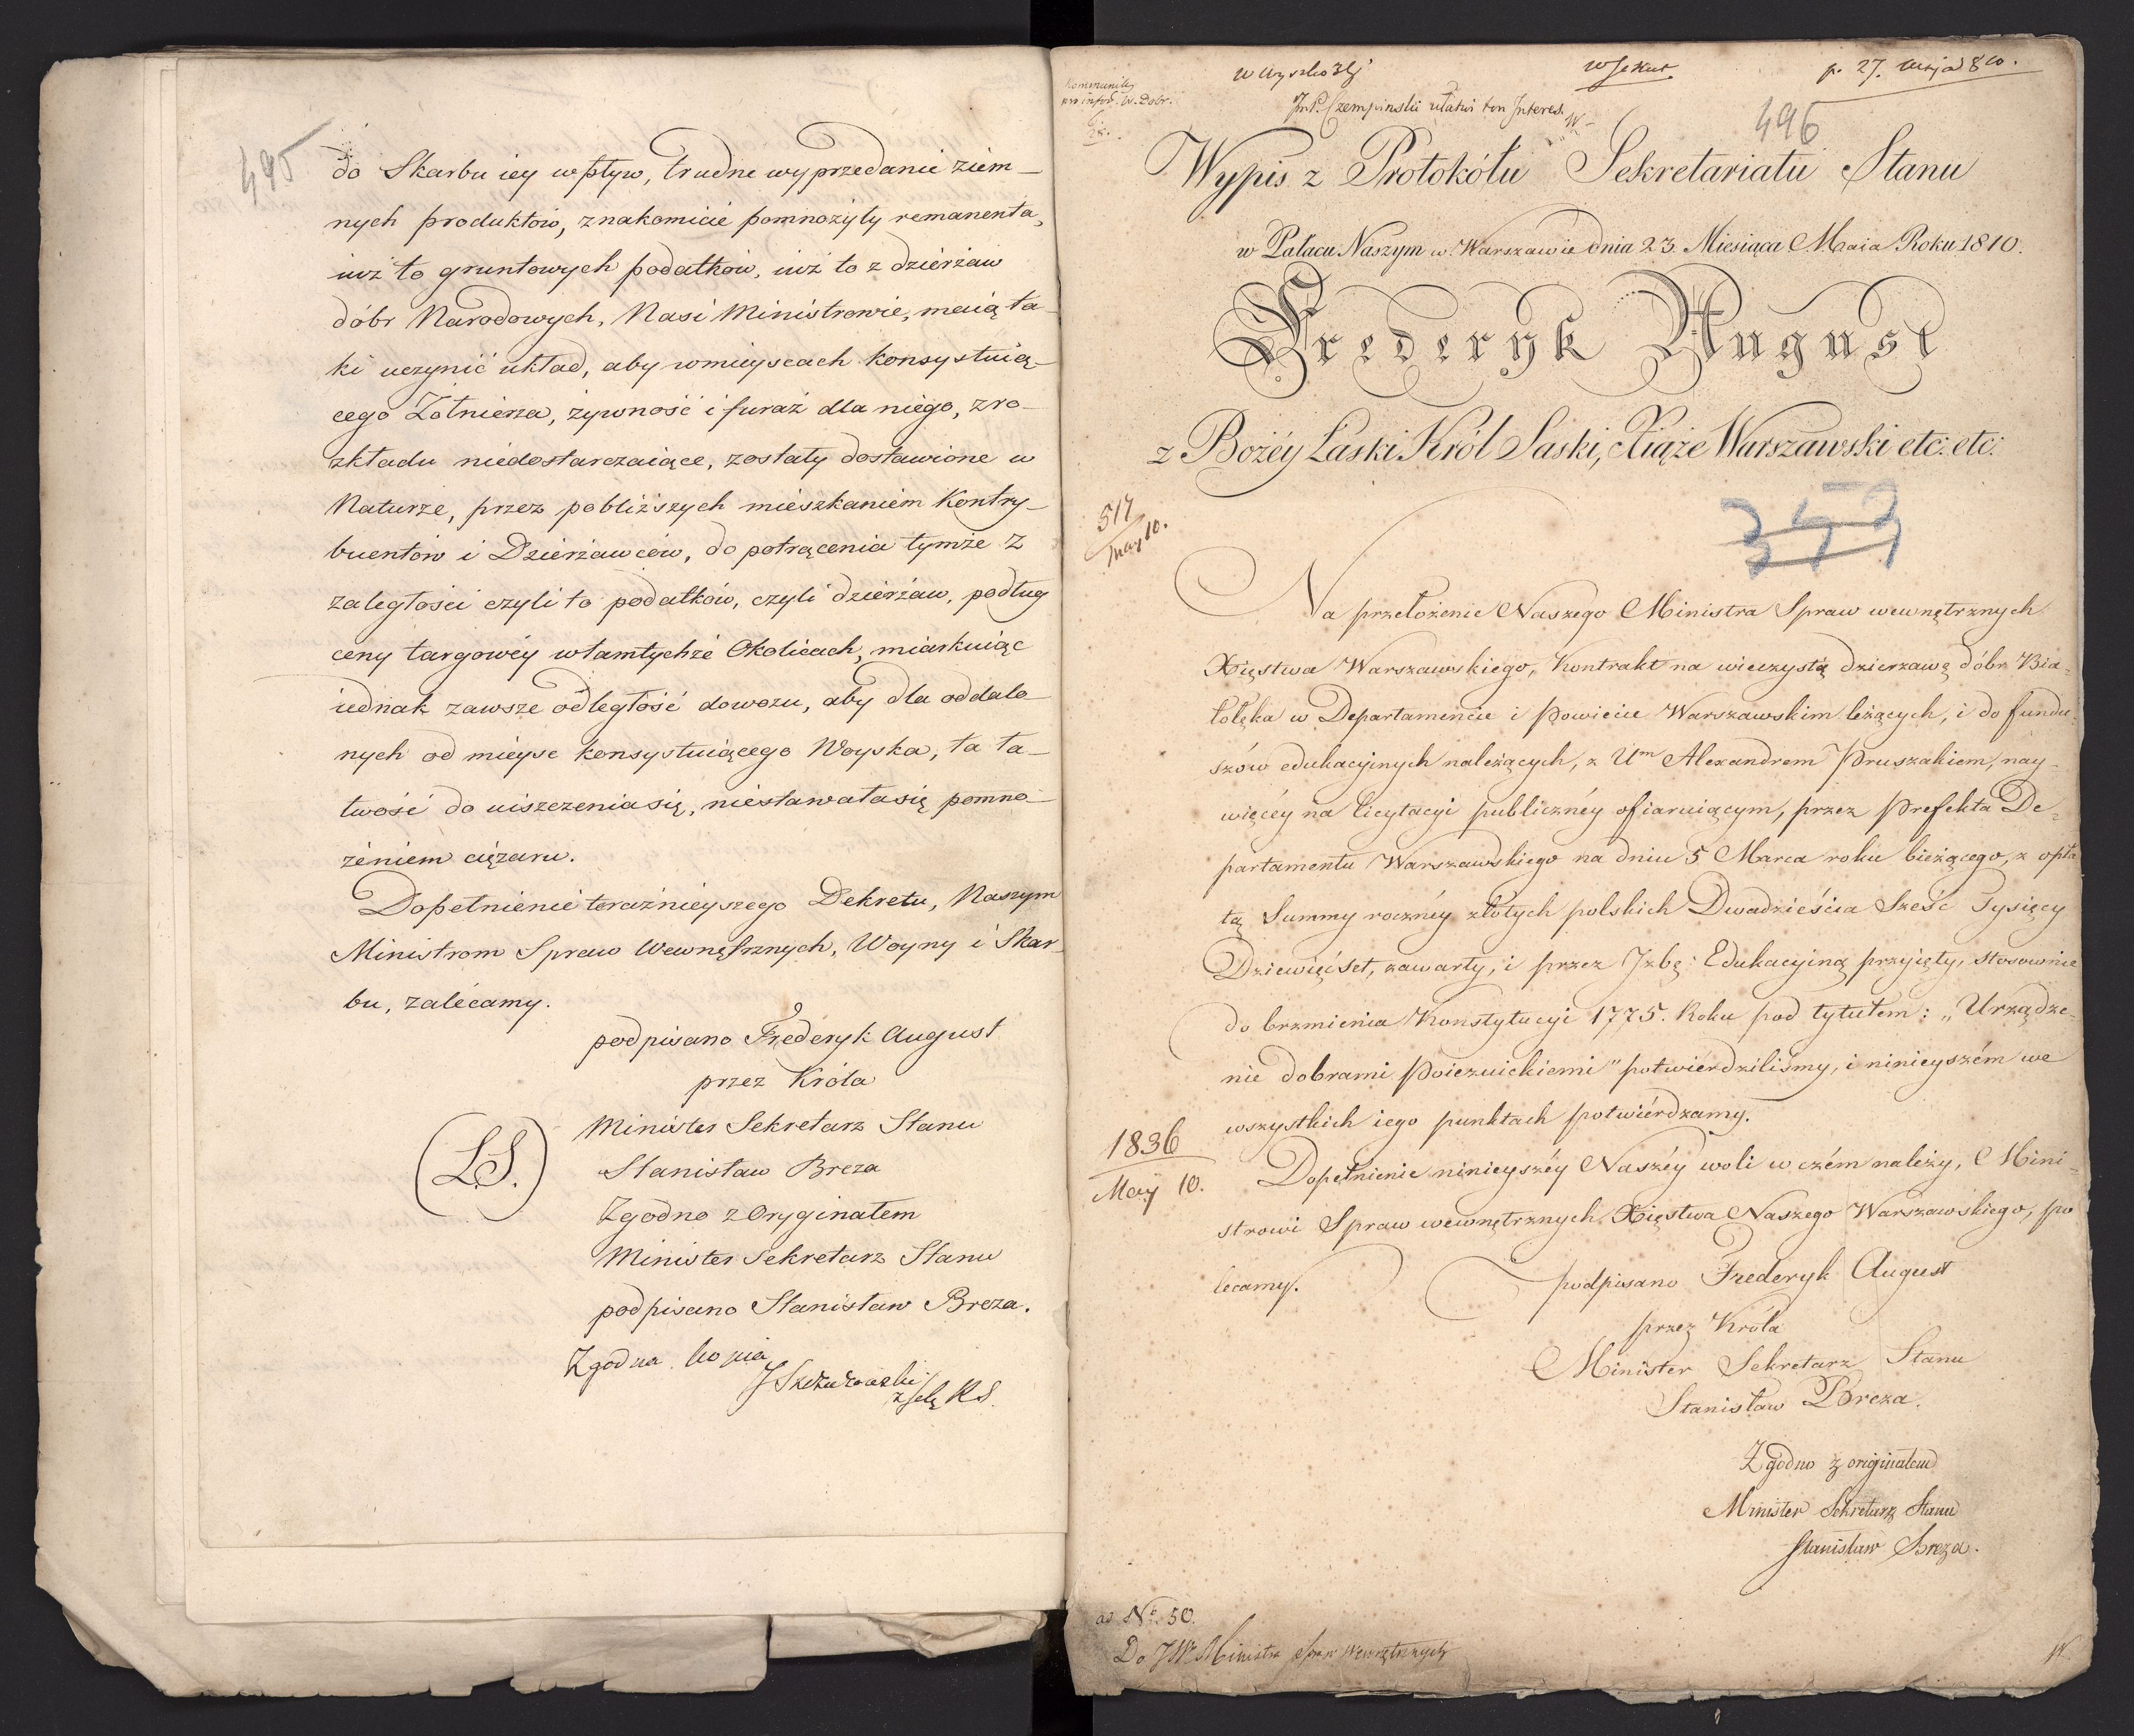 495
do Skarbu iey wpływ, trudne wyprzedanie ziem-
nych produktów, znakomicie pomnożyły remanenta,
iuż to gruntowych podatków, iuż to z dzierżaw
dóbr Narodowych, Nasi Ministrowie, maią ta-
ki uczynić układ, aby w mieyscach konsystuią-
cego Żołnierza, żywność i furaż dla niego, z ro-
zkładu niedostarczaiące, zostały dostawione w
Naturze, przez pobliższych mieszkaniem Kontry-
buentów i Dzierżawców, do potrącenia tymże z
zaległości czyli to podatków, czyli dzierżaw, podług
ceny targowéy w tamtychże Okolicach, miarkuiąc
iednak zawsze odległość dowozu, aby dla oddalo-
nych od mieysc konsystuiącego Woyska, ta ła-
twość do uiszczenia się, niestawała się pomno-
żeniem ciężaru.
Dopełnienie teraźnieyszego Dekretu, Naszym
Ministrom Spraw Wewnętrznych, Woyny i Skar-
bu, zalecamy.
podpisano Frederyk August
przez Króla
Minister Sekretarz Stanu
(L.S.) Stanisław Breza
Zgodno z Oryginałem
Minister Sekretarz Stanu
podpisano Stanisław Breza.
Zgodna kopia
w Jexut p. 27. Maja 810.
JmP. Czempinski ułatwi ten Interes.
496
Wypis z Protokółu Sekretariatu Stanu
w Pałacu Naszym w Warszawie dnia 23. Miesiąca Maia Roku 1810.
Frederyk August
z Bożéy Łaski Król Saski, Xiąże Warszawski etc: etc:
517
May 10.
Na przełożenie Naszego Ministra Spraw wewnętrznych
Xięstwa Warszawskiego, Kontrakt na wieczystą dzierzawę dóbr Bia-
łołęka w Departamencie i Powiecie Warszawskim leżących, i do fundu-
szów edukacyinych należących, z Um Alexandrem Pruszakiem, nay-
więcéy na licytacyi publicznéy ofiaruiącym, przez Prefekta De-
partamentu Warszawskiego na dniu 5 Marca roku bieżącego, z opła
tą Summy rocznéy złotych polskich Dwadzieścia Sześć Tysięcy
Dziewięćset, zawarty, i przez Izbę Edukacyiną przyięty, stosownie
do brzmienia Konstytucyi 1775. Roku pod tytułem: „Urządze-
nie dobrami Poiezuickiemi" potwierdziliśmy, i ninieyszém we
wszystkich iego punktach potwiérdzamy.
1836
May 10.
Dopełnienie ninieyszéy Naszéy woli w czém należy, Mini-
strowi Spraw wewnętrznych Xięstwa Naszego Warszawskiego, po
lecamy.
podpisano Frederyk August
przez Króla
Minister Sekretarz Stanu
Stanisław Breza.
Zgodno z originałem
Minister Sekretarz Stanu
Stanisław Breza.
ad No. 50.
Do JW Ministra Spraw Wewnętrznych